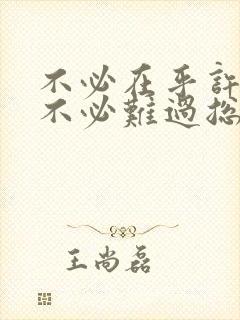 不必在乎許
不必難過總
王尚磊